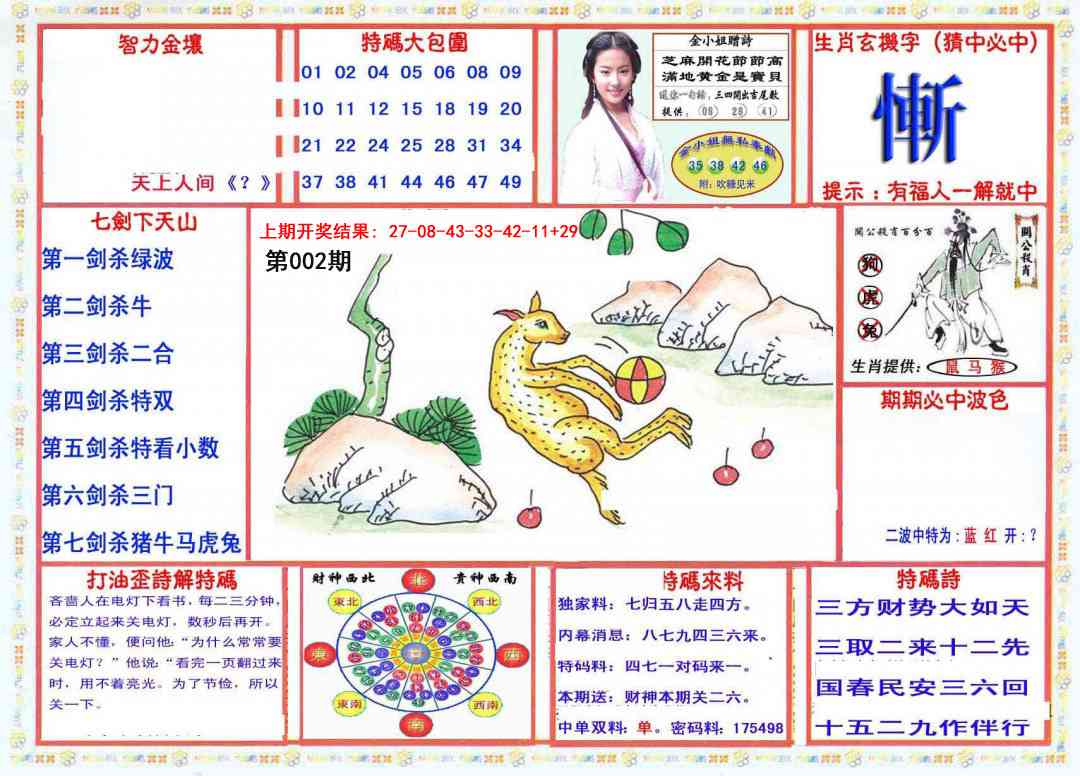 智力金壤
天上人间《？》
特碼大包圍
01 02 04 05 06 08 09
10 11 12 15 18 19 20
21 22 24 25 28 31 34
37 38 41 44 46 47 49
金小姐贈詩
芝麻開花節節高
滿地黄金是寶貝
三四開出吉尾數
提供：
金小姐無私奉獻
35 38 42 46
附：吹糠见米
生肖玄機字（猜中必中）
慚
提示：有福人一解就中
七劍下天山
第一剑杀绿波
第二剑杀牛
第三剑杀二合
第四剑杀特双
第五剑杀特看小数
第六剑杀三门
第七剑杀猪牛马虎兔
上期开奖结果：27-08-43-33-42-11+29
第002期
關公殺肖百分百
關公殺肖
狗
虎
兔
生肖提供：鼠 马 猴
期期必中波色
二波中特为：蓝 红 开：？
打油歪詩解特碼
吝啬人在电灯下看书，每二三分钟，
必定立起来关电灯，数秒后再开。
家人不懂，便问他：“为什么常常要
关电灯？”他说：“看完一页翻过来
时，用不着亮光。为了节俭，所以
关一下。
財神西北
貴神西南
北
東北
西北
東
西
東南
西南
南
特碼來料
独家料：七归五八走四方。
内幕消息：八七九四三六来。
特码料：四七一对码来一。
本期送：财神本期关二六。
中单双料：单。密码料：175498
特碼詩
三方财势大如天
三取二来十二先
国春民安三六回
十五二九作伴行